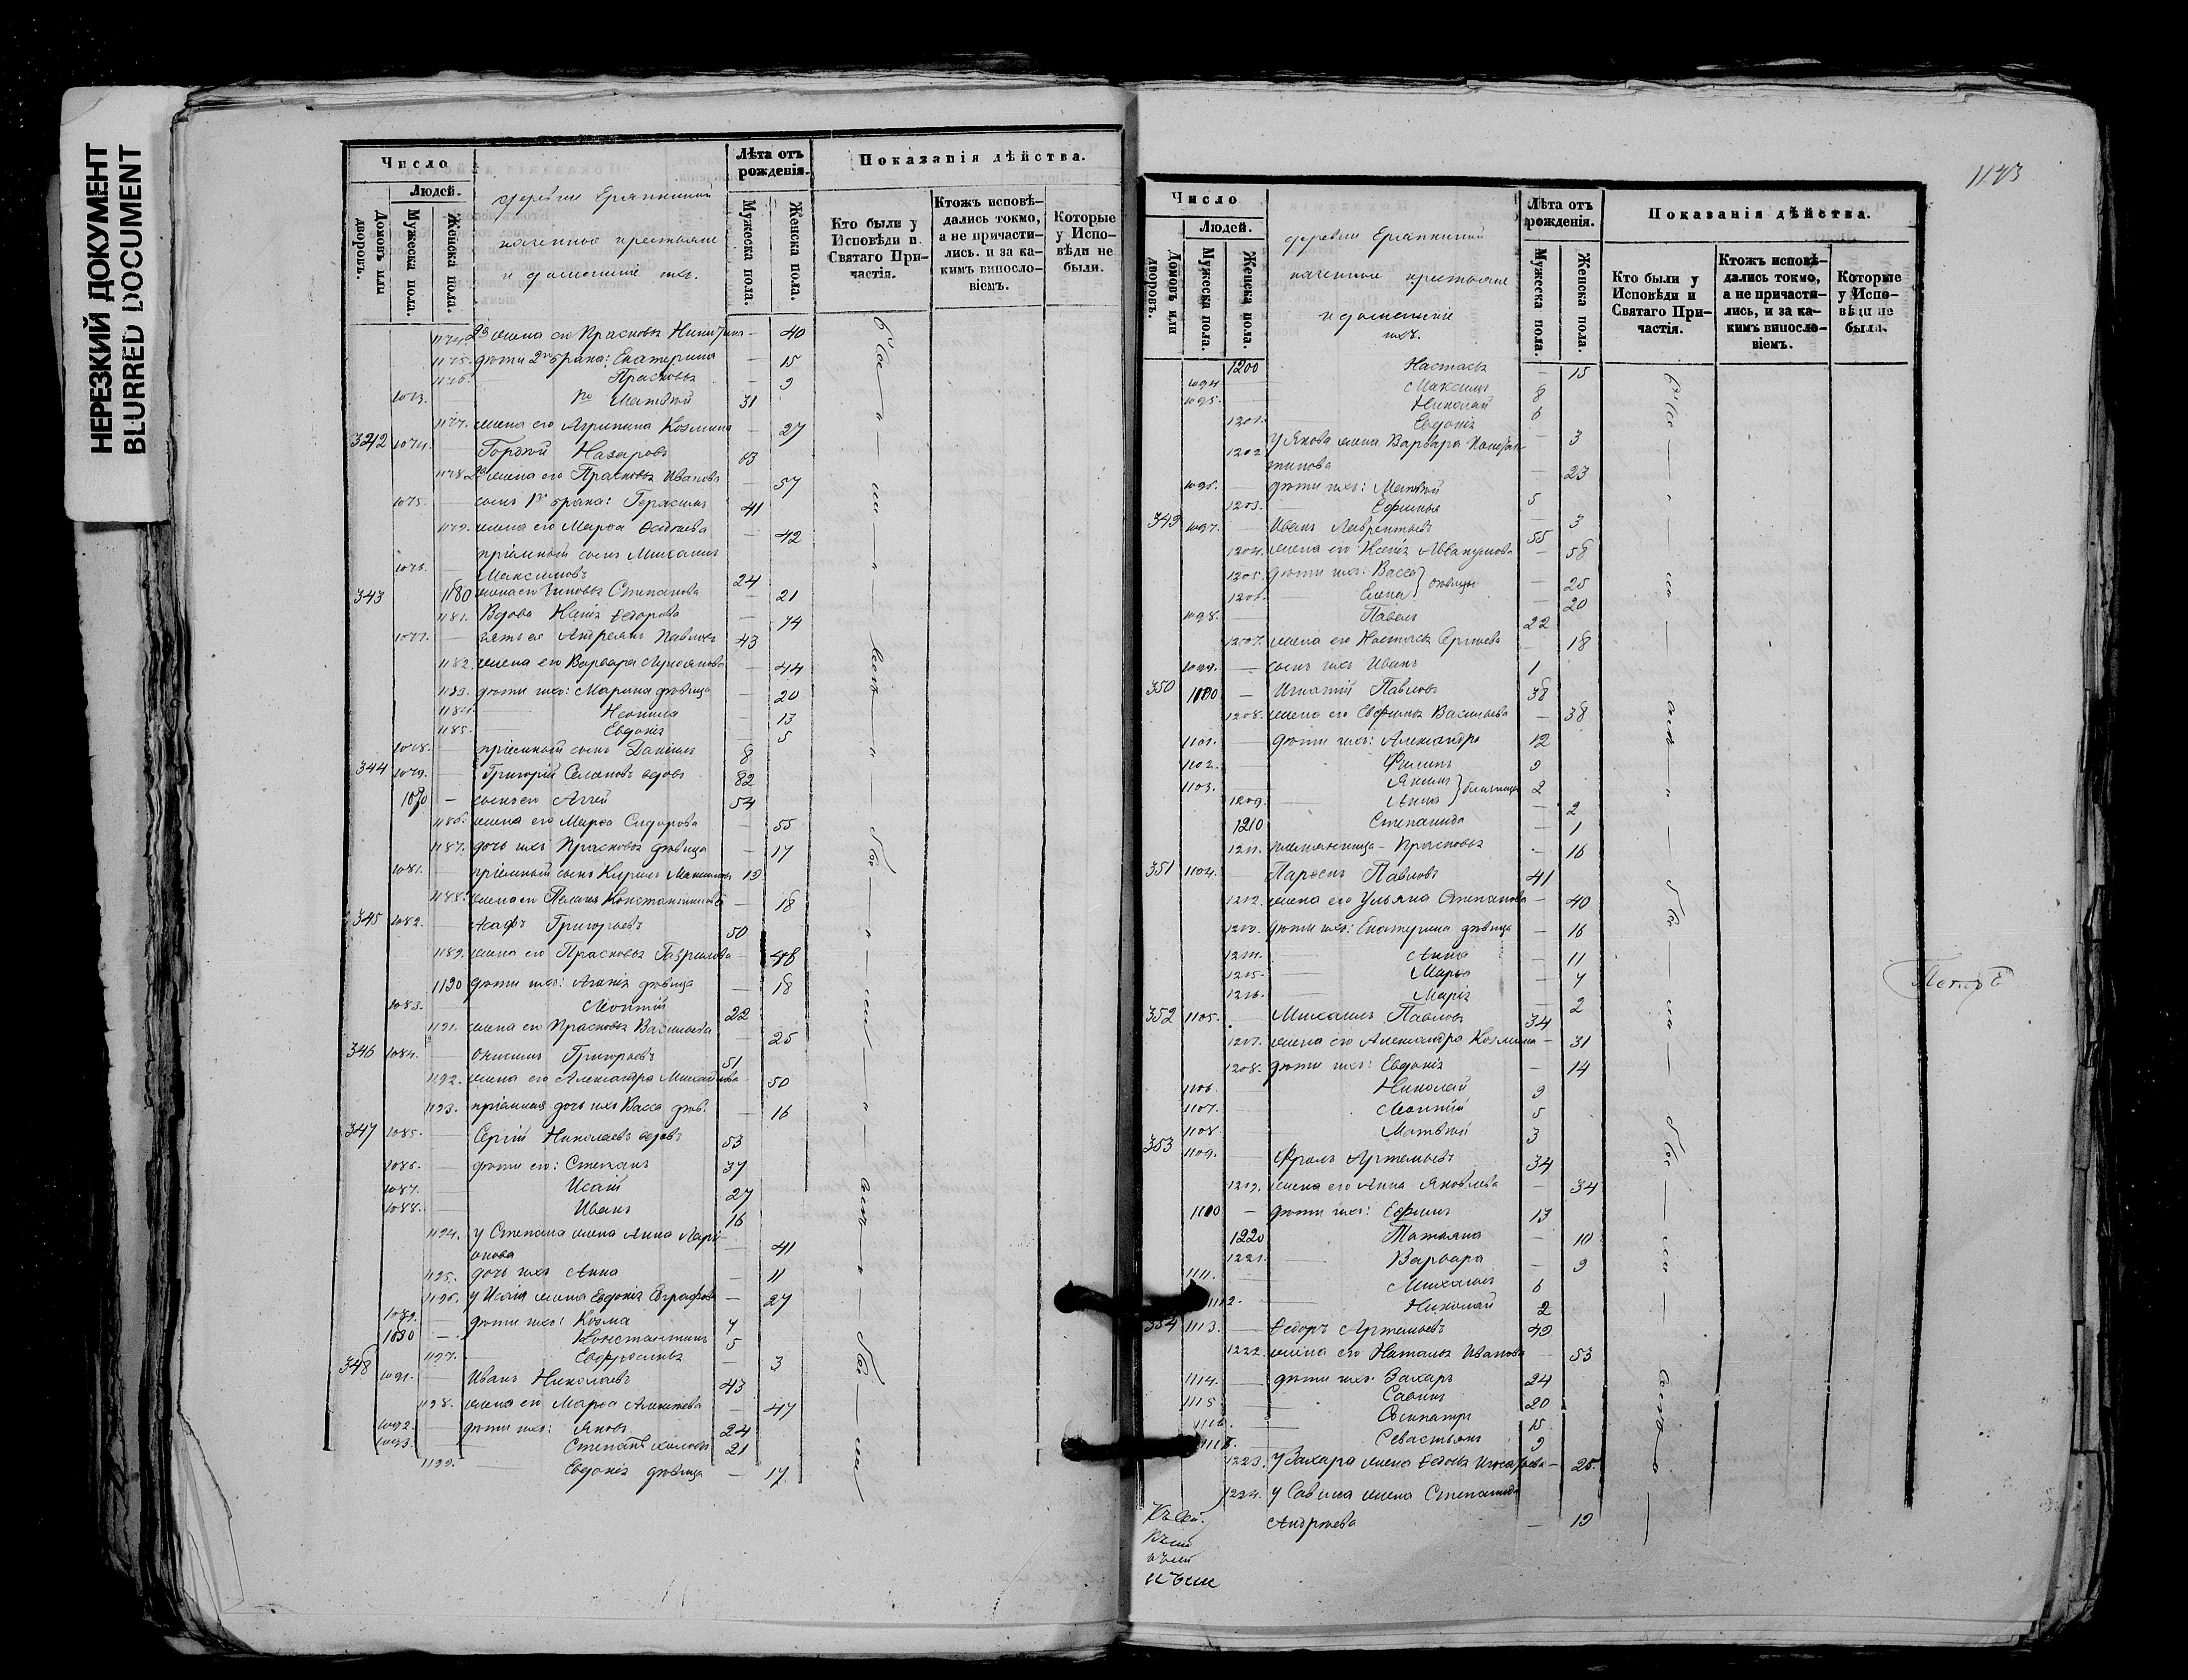 НЕРЕЗКИЙ ДОКУМЕНТ
BLURRED DOCUMENT
Число
Людей.
Домовъ или дворовъ.
Мужеска пола.
Женска пола.
казенные крестьяне
и домашніе ихъ.
Лѣта отъ рожденія.
Мужеска пола.
Женска пола.
Показанія дѣйства.
Кто были у Исповѣди и Святаго Причастія.
Ктожъ исповѣдались токмо, а не причастились, и за какимъ винословіемъ.
Которые у Исповѣди не были.
1174. 2я жена его Прасковья Никитина — 40
1175. дѣти 2го брака: Екатерина — 15
1176. Прасковья — 9
1073. 1го Матвѣй 31
1177. жена его Агрипина Козмина — 27
342 1074. Гордѣй Назаровъ 63
1178. 2я жена его Прасковья Иванова — 57
1075. сынъ 1го брака: Герасимъ 41
1179. жена его Марѳа — 42
пріемный сынъ Михаилъ
1076. Максимовъ 24
343 1180 жена его Степанова — 21
1181. Вдова Ксенія Ѳедорова 74
1077. — зять ея Андреянъ Павловъ 43
1182. жена его Варвара — 44
1183. дѣти ихъ: Марина дѣвица — 20
1184. Неонила — 13
1185. Евдокія — 5
1078. — пріемный сынъ Даніилъ 8
344 1079. — Григорій вдовъ 82
1080 — сынъ его Аггей 54
1186. жена его Марѳа Сидорова — 55
1187. дочь ихъ Прасковья дѣвица — 17
1081. — пріемный сынъ Кирилъ 19
1188. жена его Пелагея Константинова — 18
345 1082. — Асафъ Григорьевъ 50
1189. жена его Прасковья Гаврилова — 48
1190 дѣти ихъ: Агапія дѣвица — 18
1083. Леонтій 22
1191. жена его Прасковья Васильева — 25
346 1084. — Онисимъ Григорьевъ 51
1192. жена его Александра Михайлова 50
1193. пріемная дочь ихъ Васса дѣв. — 16
347 1085. — Сергій Николаевъ вдовъ 53
1086. — дѣти его: Степанъ 37
1087. — Исаій 27
1088. — Иванъ 16
1194. у Степана жена Анна Ларі-
онова — 41
1195. дочь ихъ Анна — 11
1196. у Исаія жена Евдокія Евграфова — 27
1089. — дѣти ихъ: Козма 7
1090 — Константинъ 5
1197. Евфросинья — 3
348 1091. — Иванъ Николаевъ 43
1198. жена его Марѳа — 47
1092. — дѣти ихъ: Яковъ 24
1093. Степанъ холостъ 21
1199. — Евдокія дѣвица — 17
1173
Число
Людей.
Домовъ или дворовъ.
Мужеска пола.
Женска пола.
казенные крестьяне
и домашніе
ихъ.
Лѣта отъ рожденія.
Мужеска пола.
Женска пола.
Показанія дѣйства.
Кто были у Исповѣди и Святаго Причастія.
Ктожъ исповѣдались токмо, а не причастились, и за какимъ винословіемъ.
Которые у Исповѣди не были.
1200 Настасья — 15
1094. Максимъ 8
1095. Николай 6
1201. Евдокія — 3
1202. у Якова жена Варвара Констан-
тинова — 23
1096. — дѣти ихъ: Матвѣй 5
1203. Ефимья — 3
349 1097. — Иванъ Лаврентьевъ 55
1204. жена его Ксенія Аввакумова — 58
1205. дѣти ихъ: Васса } дѣвицы — 25
1206. — Елена — 20
1098. — Павелъ 22
1207. жена его Настасья Сергѣева — 18
1099. — сынъ ихъ Иванъ 1
350 1100 — Игнатій Павловъ 38
1208. жена его Евфимья Васильева — 38
1101. — дѣти ихъ: Александръ 12
1102. Филипъ 9
1103. Якимъ } близнецы 2
1209. — Анна — 2
1210 Степанида — 1
1211. племянница — Прасковья — 16
351 1104. — Парѳенъ Павловъ 41
1212. жена его Ульяна Степанова — 40
1213. дѣти ихъ: Екатерина дѣвица — 16
1214. — Анна — 11
1215. — Марѳа — 7
1216. — Марія — 2
352 1105. — Михаилъ Павловъ 34
1207. жена его Александра Козмина — 31
1208. дѣти ихъ: Евдокія — 14
1106. Николай 9
1107. Леонтій 5
1108. Матвѣй 3
353 1109. — Фролъ Артемьевъ 34
1219. жена его Анна Яковлева — 34
1110 — дѣти ихъ: Ефимъ 13
1220 Татьяна — 10
1221. Варвара — 9
1111. Михаилъ 6
1112. — Николай 2
354 1113. — Ѳедоръ Артемьевъ 49
1222. жена его Наталья Иванова 53
1114. — дѣти ихъ: Захаръ 24
1115 — Савинъ 20
1116. — Сосипатръ 15
1118. — Севастьянъ 9
1223. у Захара жена Ѳедосья — 25.
1224. у Савина жена Степанида
Андреева — 19